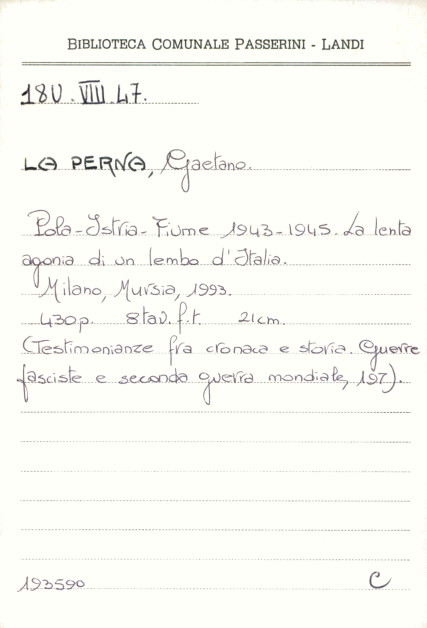 BIBLIOTECA COMUNALE PASSERINI - LANDI
18U.VIII.47.
LA PERNA, Gaetano.
Pola-Istria-Fiume 1943-1945. La lenta
agonia di un lembo d'Italia.
Milano, Mursia, 1993.
430p. 8tav.f.t. 21cm.
(Testimonianze fra cronaca e storia. Guerre
fasciste e seconda guerra mondiale, 197).
193590 C